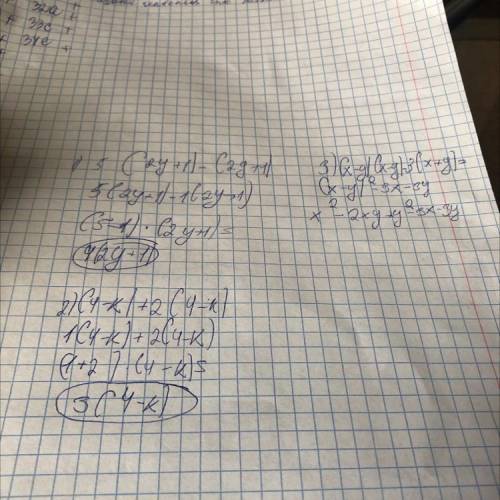 32a
33c
34c
1) 5 (2y+1)-(2y+1)
5(2y+1)-1(2y+1)
(5-1)·(2y+1)=
4(2y+1)
2)(4-k)+2(4-k)
1(4-k)+2(4-k)
(1+2)(4-k)=
3(4-k)
3)(x-y)(x-y)-3(x+y)=
(x-y)²-3x-3y
x²-2xy+y²-3x-3y